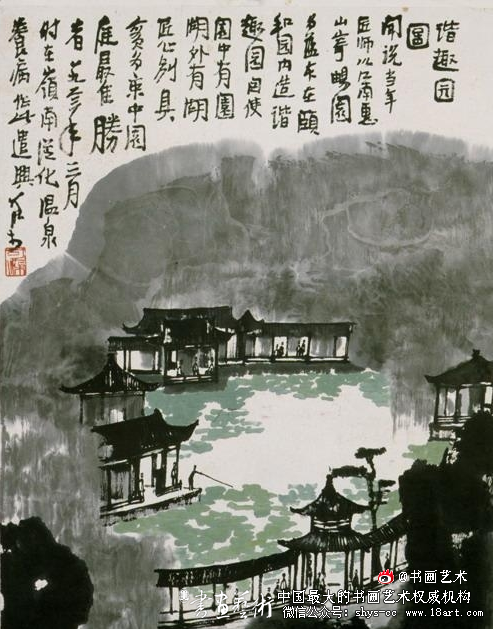 谐趣园
圖
闻说当年
匠师以江南惠
山寄畅園
为蓝本在頤
和园内造谐
趣园因使
園中有園
湖外有湖
匠心别具
为京中園
庭最佳勝
者 三月
时在嶺南從化温泉
養病作此遣興 可染
@书画艺术
書画藝術
中国最大的书画艺术权威机构
微信公众号：shys-cc www.18art.com